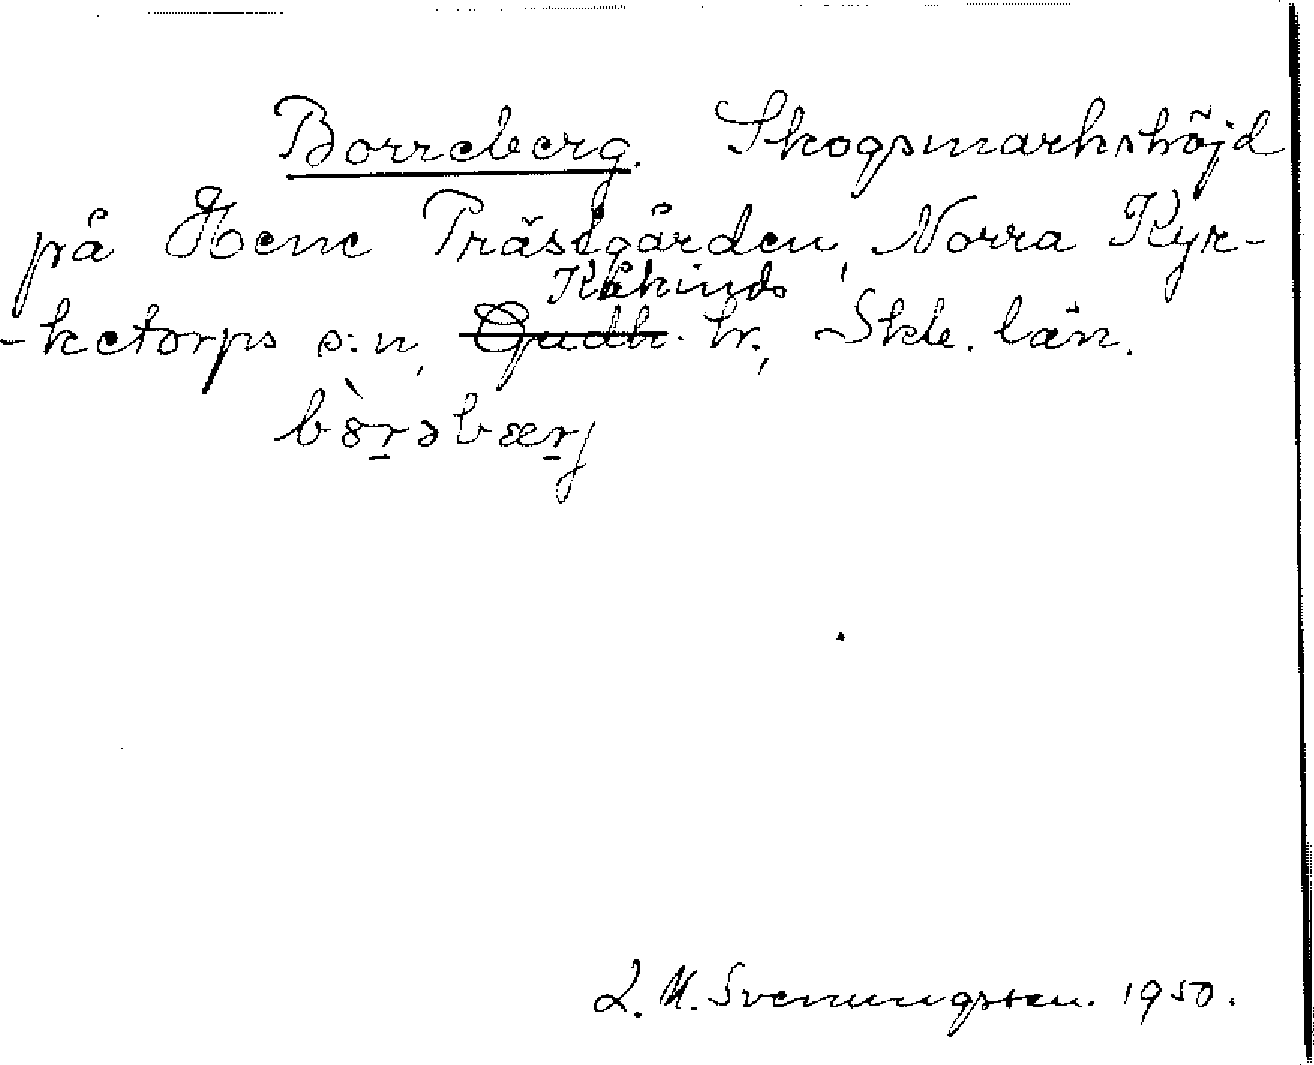 Borreberg. Skogsmarkshöjd
på Hene Prästgården, Norra Kyr-
Kåkinds
-ketorps s:n, Gudh. hr., Skb. län.
bòrəbærj
L. M. Svenungsson. 1950.